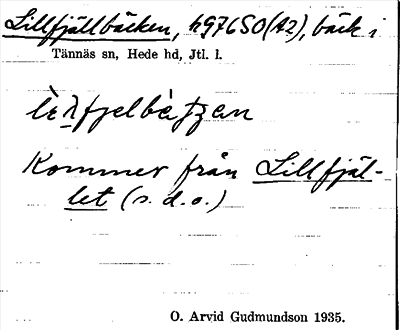 Lillfjällbäcken, h97650(A2), bäck i
Tännäs sn, Hede hd, Jtl. l.
Kommer från Lillfjäl-
let (s. d. o.)
O. Arvid Gudmundson 1935.